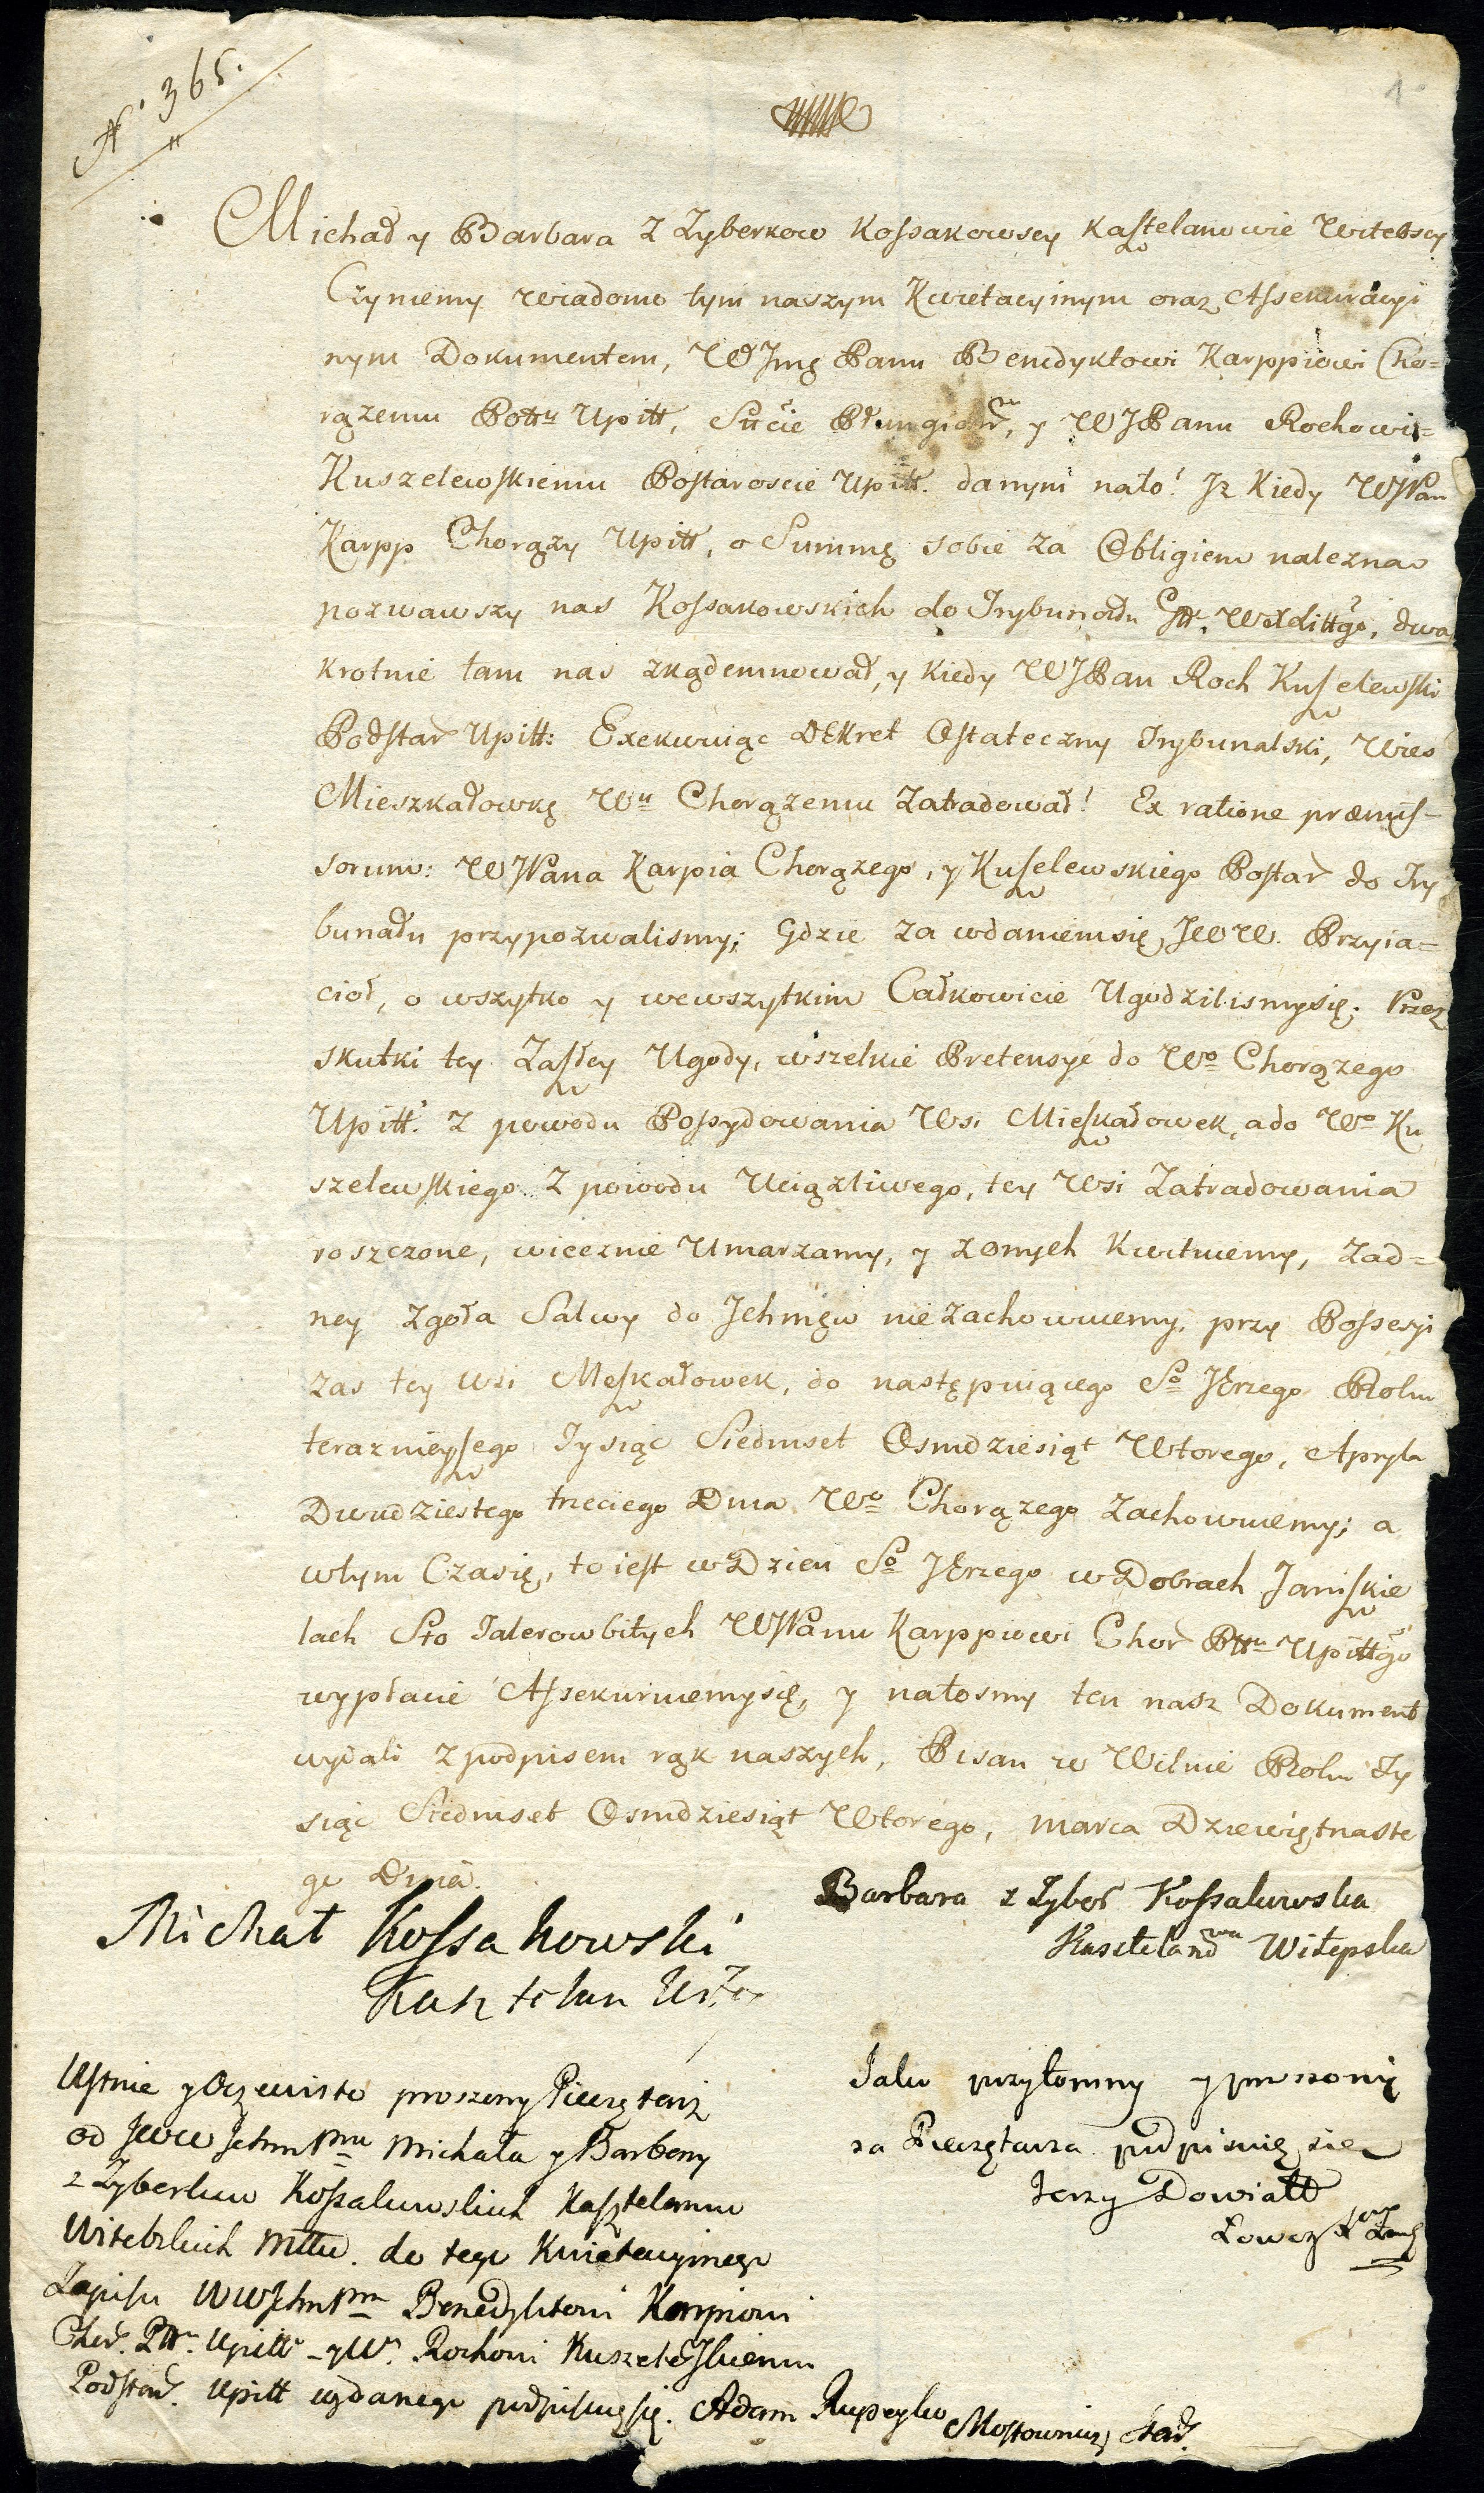 N° 365.
1
Michał y Barbara z Zyberkow Kossakowscy Kasztelanowie Witebscy
Czyniemy wiadomo tym naszym Kwietacyinym oraz Assekuracyi
nym Dokumentem, WJmę Panu Benedyktowi Karppiowi Cho=
rążemu Pottu Upitt, Stście Płungiań, y WJPanu Rochowi=
Kuszelewskiemu Postaroscie Upitt. danym nato! Jż Kiedy WJPan
Karpp Chorąży Upitt, o Summę sobie za Obligiem nalezna
pozwawszy nas Kossakowskich do Trybunału Gł. WXdittgo, dwa
krotnie tam nas zkądemnował, y Kiedy WJPan Roch Kuszelewski
Podstar Upitt: Exekwuiąc DEkret Ostateczny Trybunalski, Wies
Mieszkałowkę Wu Chorążemu Zatradował! Ex ratione præmis-
sorum: WJPana Karpia Chorążego, y Kuszelewskiego Postar do Try
bunału przypozwalismy; Gdzie Za wdaniemsię JWW. Przyia=
cioł, o wszytko y wewszytkim Całkowicie Ugodzilismysię. Przez
skutki tey Zaszłey Ugody, wszelkie Pretensye do Wo Chorążego
Upitt. z powodu Possydowania Wsi Mieszkałowek, ado Wo Ku
szelewskiego z powodu Uciążliwego, tey Wsi Zatradowania
roszczone, wiecznie Umarzamy, y z onych Kwituiemy, Żad=
ney zgoła Salwy do Jchmęw nie zachowuiemy, przy Possesyi
zas tey wsi Meszkałowek, do następuiącego So JErzego Roku
teraznieyszego Tysiąc Siedmset Osmdziesiąt Wtorego, Apryla
Dwudziestego trzeciego Dnia Wo Chorążego Zachowuiemy; a
wtym Czasię, to iest w Dzien So JErzego w Dobrach Janiszkie
lach Sto Talerow bitych WJPanu Karppiowi Chor Pttu Upittgo
wypłacić Assekuruiemysię, y natosmy ten nasz Dokument
wydali z podpisem rąk naszych, Pisan w Wilnie Roku Ty
siąc Siedmset Osmdziesiąt Wtorego, marca Dziewiętnaste
go Dnia.
Barbara z Zyber Kossakowska
Kasztelanowa Witepska
Michał Kossakowski
Kasztelan Witeb
Ustnie y Oczewisto proszony Pieczętarz
od JWW JchmPnw Michała y Barbary
z Zyberkow Kossakowskich Kasztelanow
Witebskich Mttw. do tego Kwietacyinego
Zapisu WWJchmPm Benedyktowi Karpiowi
Chor. Ptt. Upitt y W. Rochowi Kuszelewskiemu
Podstar. Upitt wydanego podpisuięsię. Adam Rupeyko Mostowniczy
Jako przytomny y proszony
za Pieczętarza podpisuię się
Jerzy Dowiatt
Łowczy